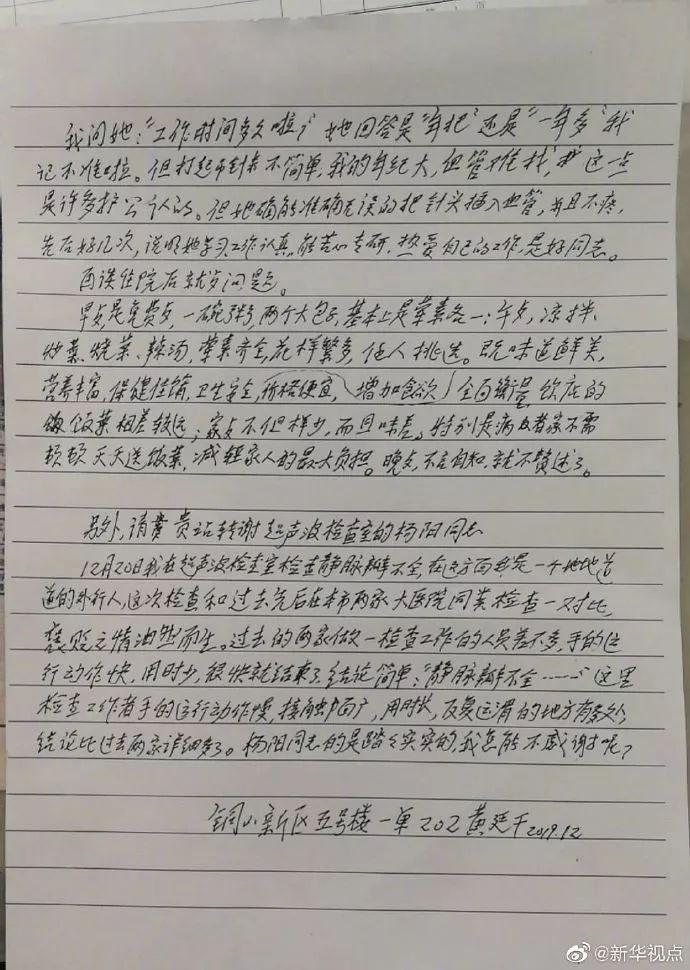 我问她：“工作时间多久啦？”她回答是“年把”还是“一年多”我
记不准啦。但打起针来不简单，我的年纪大，血管难找，这一点
是许多护公认的。但她确能准确无误的把针头插入血管，并且不疼，
先后好几次，说明她学习工作认真，能苦心专研，热爱自己的工作，是好同志。
再谈住院后就歺问题。
早歺是免费歺，一碗粥，两个大包子，基本上是荤素各一；午歺，凉拌、
炒菜、烧菜、辣汤，荤素齐全，花样繁多，任人挑选。既味道鲜美，
营养丰富，保健佳肴，卫生安全，价格便宜，增加食欲，全面衡量，饮店的
饭菜相差较远；家歺不但样少，而且味差。特别是病者家不需
顿顿天天送饭菜，减轻家人的最大负担。晚歺，不言自知，就不赘述了。
另外，请贵站转谢超声波检查室的杨阳同志
12月20日我在超声波检查室检查静脉瓣不全，在这方面我是一个地地道
道的外行人，这次检查和过去先后在本市两家大医院同类检查一对比，
褒贬之情油然而生。过去的两家做一检查工作的人员差不多，手的运
行动作快，用时少，很快就结束了，结论简单：“静脉瓣不全……”这里
检查工作者手的运行动作慢，接触面广，用时长，反复运滑的地方有多处，
结论比过去两家详细多了。杨阳同志的是踏踏实实的，我怎能不感谢呢？
铜山新区五号楼一单202 黄廷干 2019.12
@新华视点